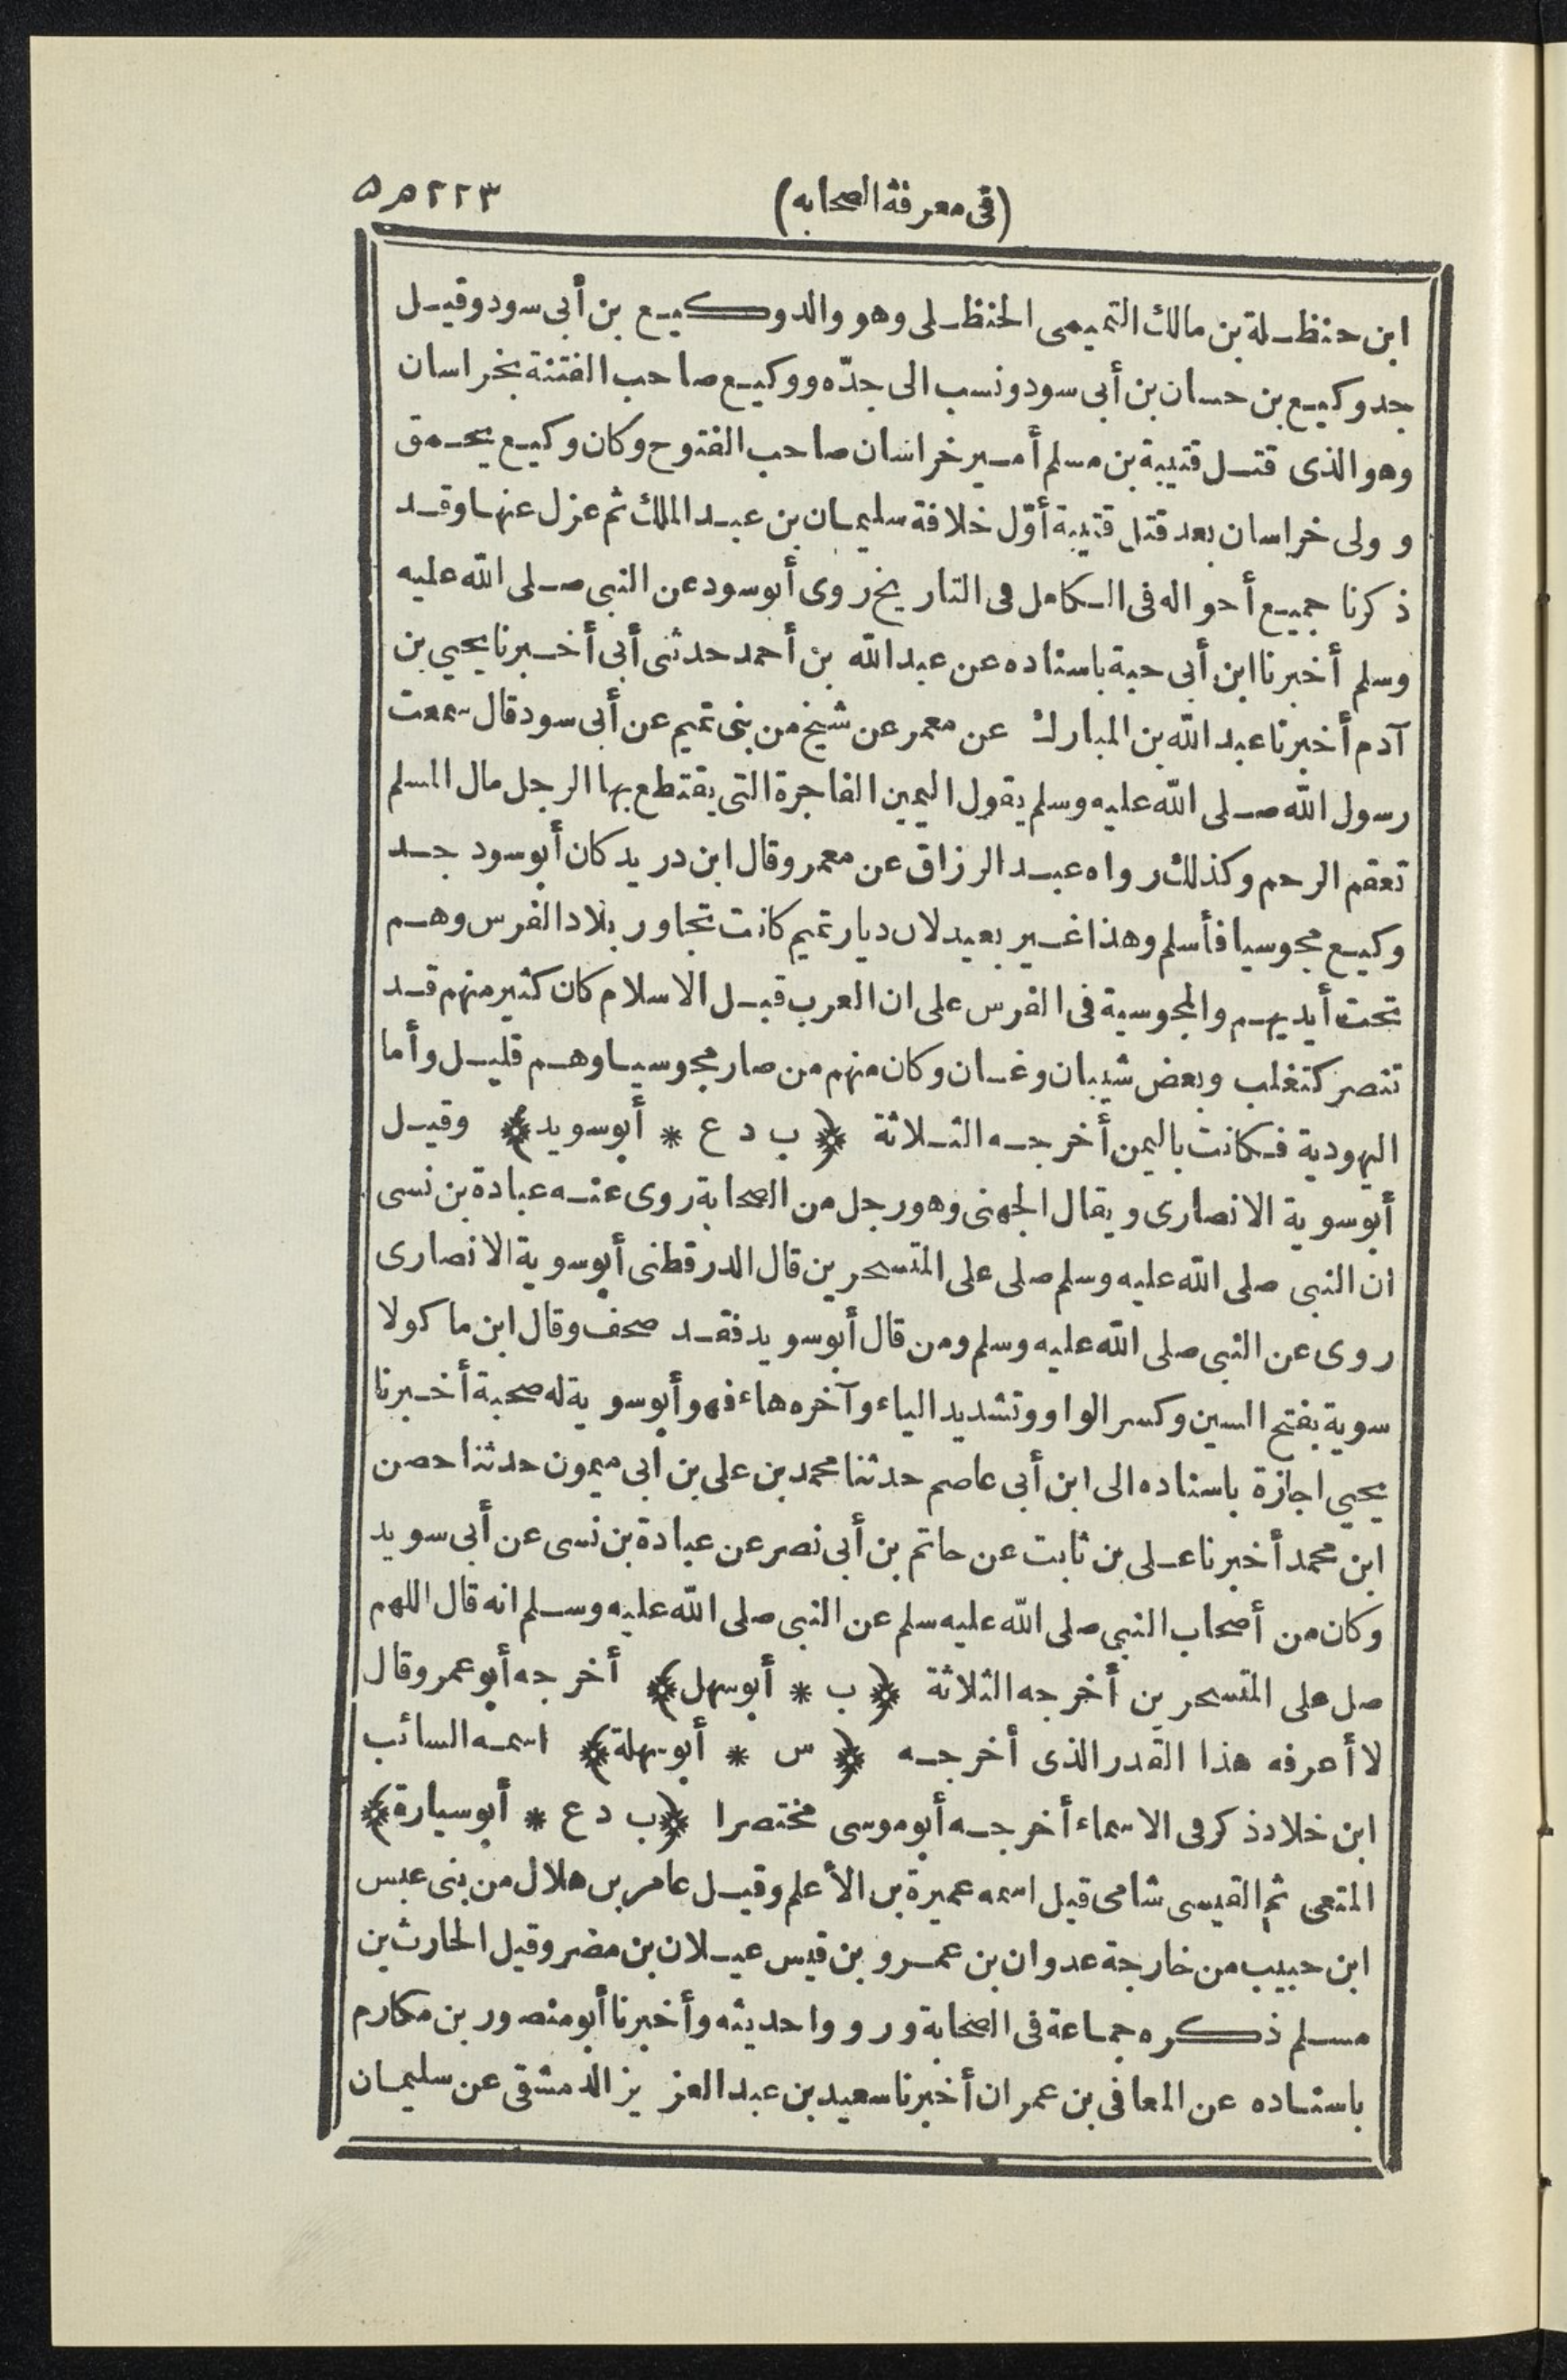 (فى معرفة الصحابه)
٢٢٣
ابن حنظلة بن مالك التميمى الحنظلى وهو والد وكيع بن أبى سود وقيل
جد وكيع بن حسان بن أبى سود ونسب الى جدّه ووكيع صاحب الفتنة بخراسان
وهو الذى قتل قتيبة بن مسلم أمير خراسان صاحب الفتوح وكان وكيع يحمق
وولى خراسان بعد قتل قتيبة أوّل خلافة سليمان بن عبد الملك ثم عزل عنها وقد
ذكرنا جميع أحواله فى الكامل فى التاريخ روى أبو سود عن النبى صلى الله عليه
وسلم أخبرنا ابن أبى حبة باسناده عن عبد الله بن أحمد حدثنى أبى أخبرنا يحيى بن
آدم أخبرنا عبد الله بن المبارك عن معمر عن شيخ من بنى تميم عن أبى سود قال سمعت
رسول الله صلى الله عليه وسلم يقول اليمين الفاجرة التى يقتطع بها الرجل مال المسلم
تعقم الرحم وكذلك رواه عبد الرزاق عن معمر وقال ابن دريد كان أبو سود جد
وكيع مجوسيا فأسلم وهذا غير بعيد لان ديار تميم كانت تجاور بلاد الفرس وهم
تحت أيديهم والمجوسية فى الفرس على ان العرب قبل الاسلام كان كثير منهم قد
تنصر كتغلب وبعض شيبان وغسان وكان منهم من صار مجوسيا وهم قليل وأما
اليهودية فكانت باليمن أخرجه الثلاثة ﴿ ب د ع * أبو سويد﴾ وقيل
أبو سوية الانصارى ويقال الجهنى وهو رجل من الصحابة روى عنه عبادة بن نسى
ان النبى صلى الله عليه وسلم صلى على المتسحرين قال الدرقطنى أبو سوية الانصارى
روى عن النبى صلى الله عليه وسلم ومن قال أبو سويد فقد صحف وقال ابن ماكولا
سوية بفتح السين وكسر الواو وتشديد الياء وآخره هاء فهو أبو سوية له صحبة أخبرنا
يحيى اجازة باسناده الى ابن أبى عاصم حدثنا محمد بن على بن ابى ميمون حدثنا حصن
ابن محمد أخبرنا على بن ثابت عن حاتم بن أبى نصر عن عبادة بن نسى عن أبى سويد
وكان من أصحاب النبى صلى الله عليه سلم عن النبى صلى الله عليه وسلم انه قال اللهم
صل على المتسحرين أخرجه الثلاثة ﴿ ب * أبو سهل﴾ أخرجه أبو عمر وقال
لا أعرفه هذا القدر الذى أخرجه ﴿ س * أبو سهلة﴾ اسمه السائب
ابن خلاد ذكر فى الاسماء أخرجه أبو موسى مختصرا ﴿ب د ع * أبو سيارة﴾
المتعى ثم القيسى شامى قيل اسمه عميرة بن الأعلم وقيل عامر بن هلال من بنى عبس
ابن حبيب من خارجة عدوان بن عمرو بن قيس عيلان بن مضر وقيل الحارث بن
مسلم ذكره جماعة فى الصحابة ورووا حديثه وأخبرنا أبو منصور بن مكارم
باسناده عن المعافى بن عمران أخبرنا سعيد بن عبد العزيز الدمشقى عن سليمان